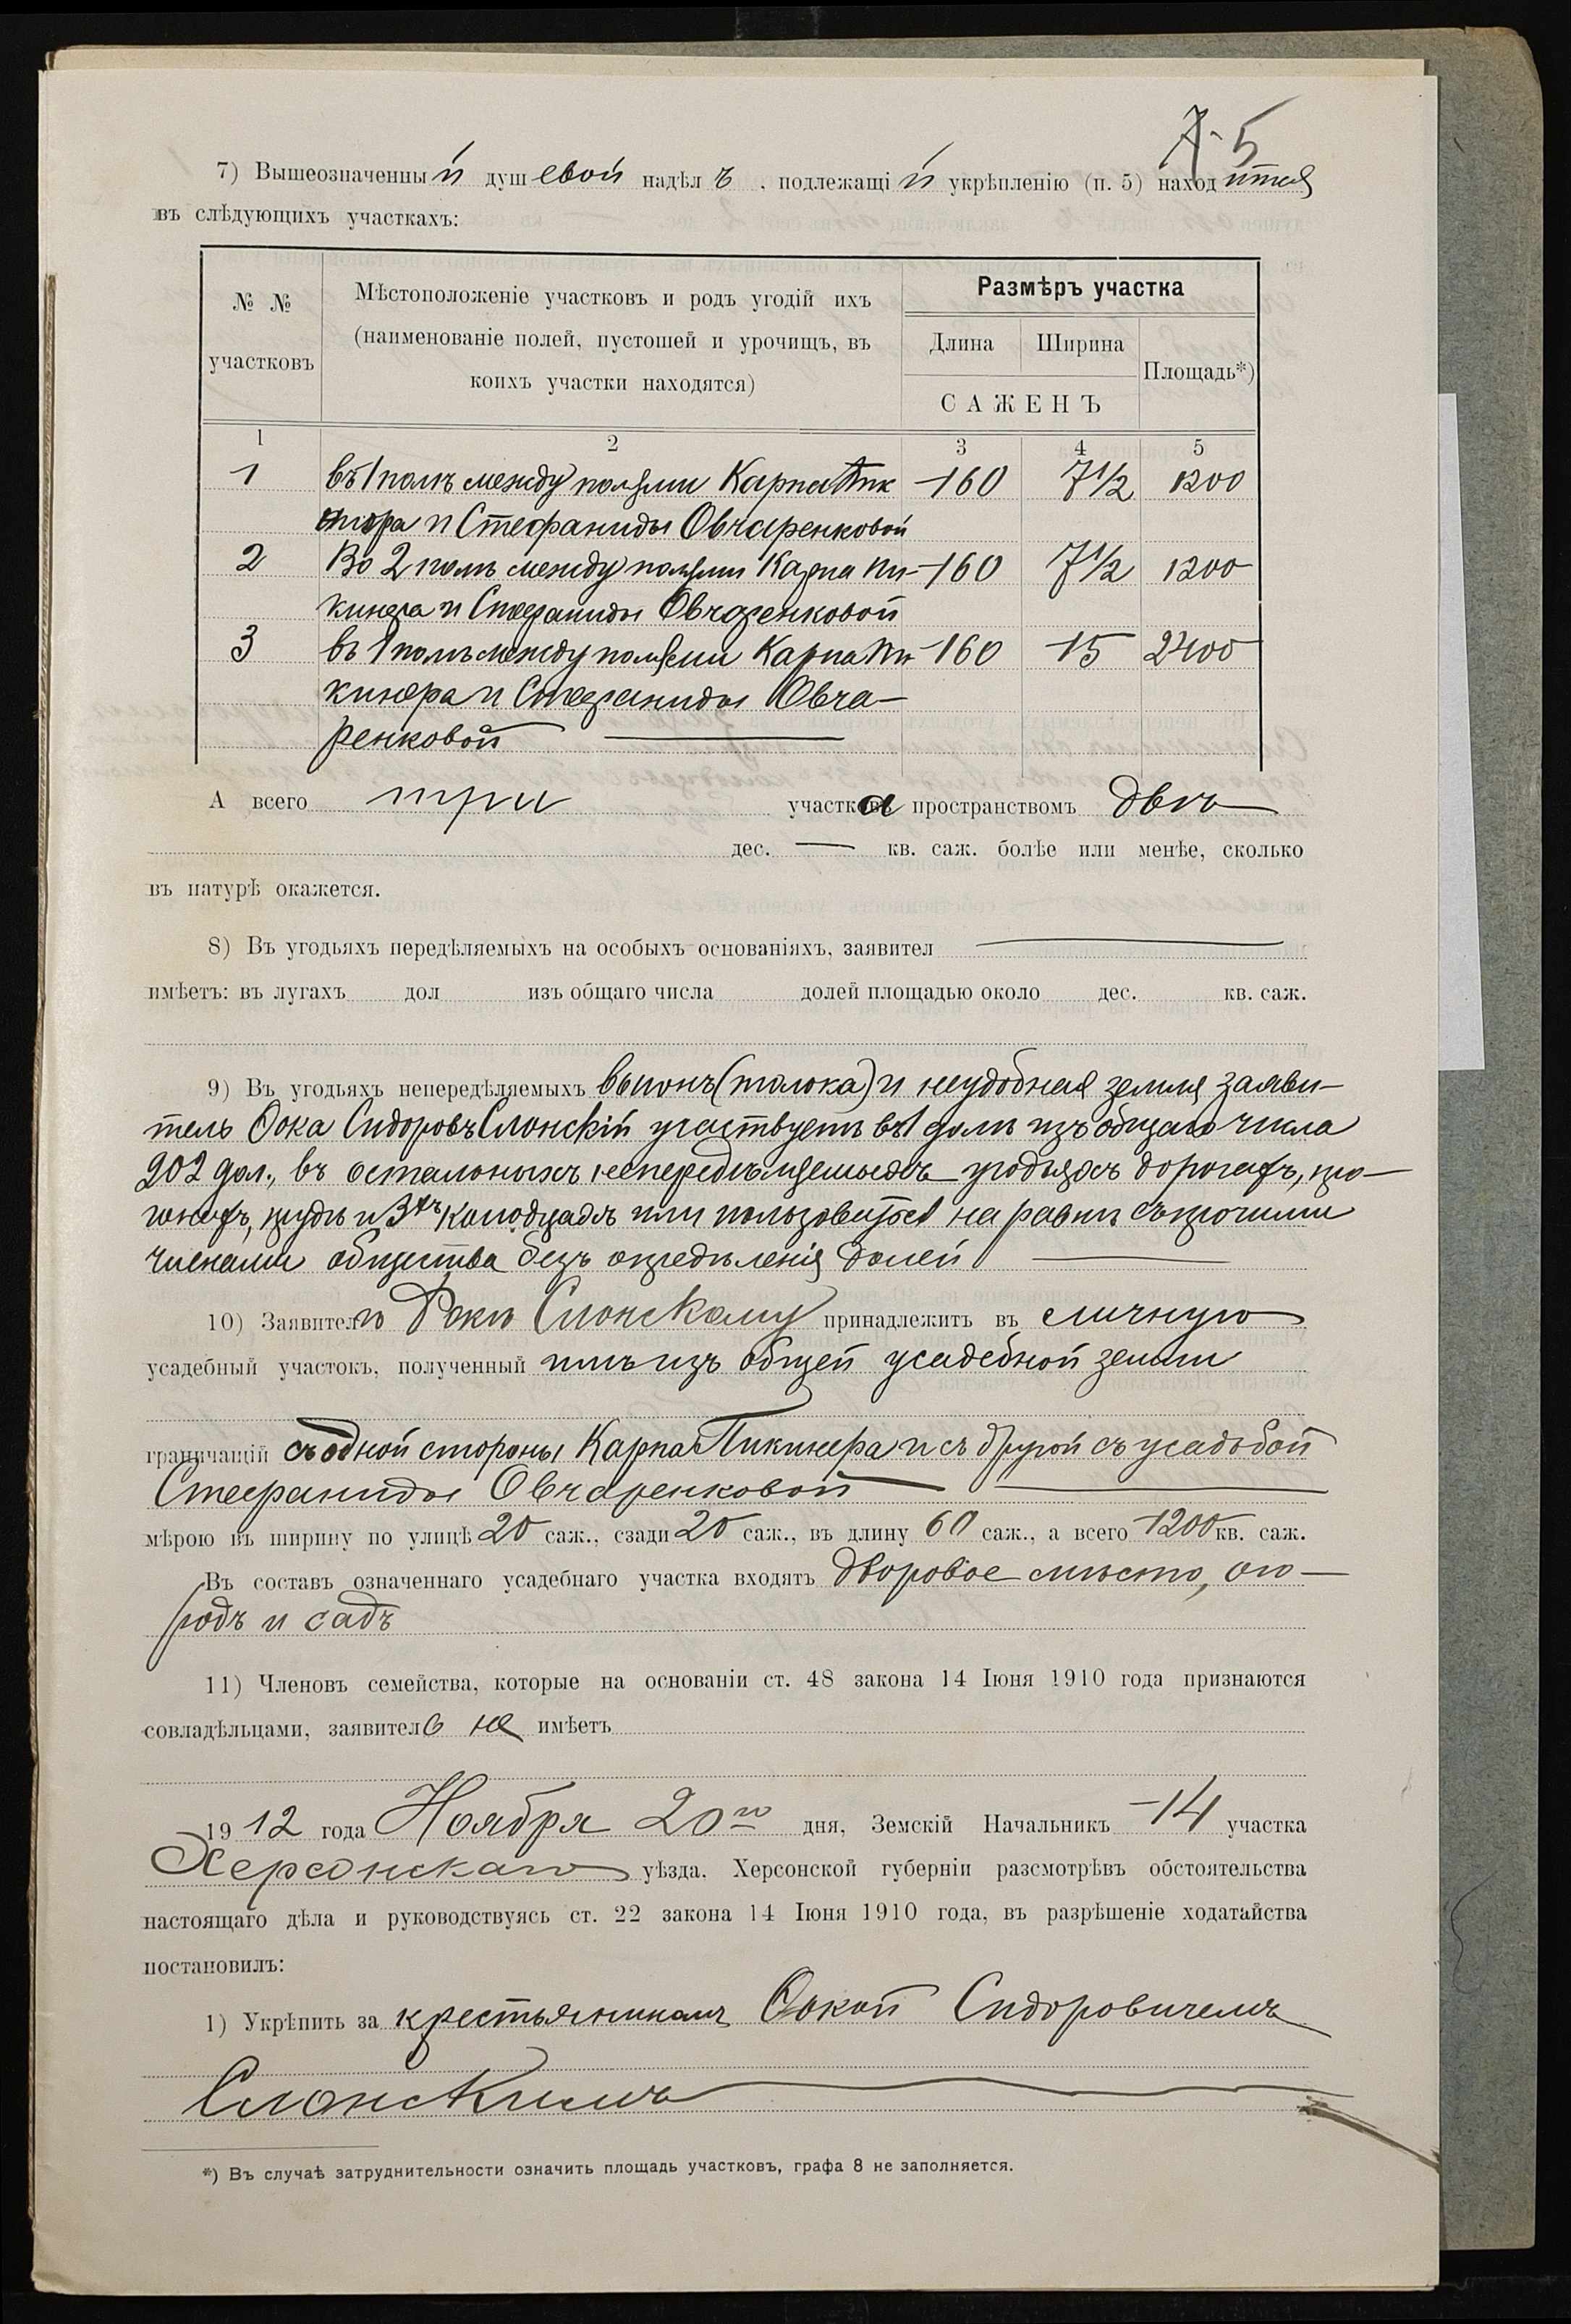 5
7) Вышеозначенный душевой надѣлъ, подлежащій укрѣпленію (п. 5) находится
въ слѣдующихъ участкахъ:
№ №
участковъ
Мѣстоположеніе участковъ и родъ угодій ихъ
(наименованіе полей, пустошей и урочищъ, въ
коихъ участки находятся)
Размѣръ участка
Длина Ширина
Площадь*)
САЖЕНЪ
1 2 3 4 5
1 въ 1 полѣ между полями Карпа Пик 160 7½ 1200
инера и Стефаниды Овчаренковой
2 Во 2 полѣ между полями Карпа Пи- 160 7½ 1200
кинера и Стефаниды Овчаренковой
3 въ 1 полѣ между полями Карпа Пи- 160 15 2400
кинера и Стефаниды Овча-
ренковой
А всего три участка пространствомъ двѣ
дес. — кв. саж. болѣе или менѣе, сколько
въ натурѣ окажется.
8) Въ угодьяхъ передѣляемыхъ на особыхъ основаніяхъ, заявител
имѣетъ: въ лугахъ дол изъ общаго числа долей площадью около дес. кв. саж.
9) Въ угодьяхъ непередѣляемыхъ выгонъ (толока) и неудобная земля заяви-
тель Фока Сидоровъ Слонскій участвуетъ въ 1 долѣ изъ общаго числа
202 дол., въ остальныхъ непередѣляемыхъ угодьяхъ дорогахъ, про-
гонахъ, прудѣ и 3хъ колодцахъ пользоваться на равнѣ съ прочими
членами общества безъ опредѣленія долей
10) Заявителю Фокѣ Слонскому принадлежитъ въ личную
усадебный участокъ, полученный имъ изъ общей усадебной земли
граничащій съ одной стороны Карпа Пикинера и съ другой съ усадьбой
Стефаниды Овчаренковой
мѣрою въ ширину по улицѣ 20 саж., сзади 20 саж., въ длину 60 саж., а всего 1200 кв. саж.
Въ составъ означеннаго усадебнаго участка входятъ дворовое мѣсто, ого-
родъ и садъ
11) Членовъ семейства, которые на основаніи ст. 48 закона 14 Іюня 1910 года признаются
совладѣльцами, заявитель не имѣетъ
1912 года Ноября 20го дня, Земскій Начальникъ 14 участка
Херсонскаго уѣзда, Херсонской губерніи разсмотрѣвъ обстоятельства
настоящаго дѣла и руководствуясь ст. 22 закона 14 Іюня 1910 года, въ разрѣшеніе ходатайства
постановилъ:
1) Укрѣпить за крестьяниномъ Фокой Сидоровичемъ
Слонскимъ
*) Въ случаѣ затруднительности означить площадь участковъ, графа 8 не заполняется.